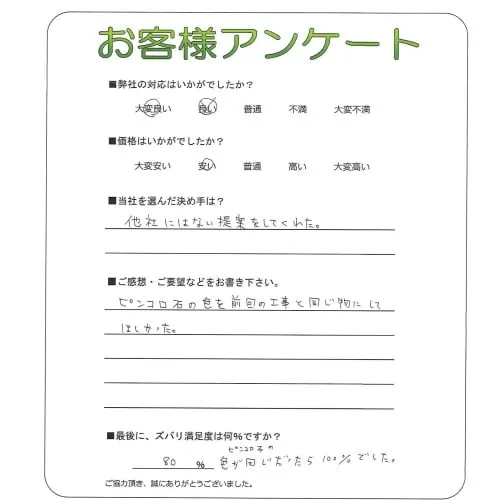 お客様アンケート
■弊社の対応はいかがでしたか？
大変良い 良い 普通 不満 大変不満
■価格はいかがでしたか？
大変安い 安い 普通 高い 大変高い
■当社を選んだ決め手は？
他社にはない提案をしてくれた。
■ご感想・ご要望などをお書き下さい。
ピンコロ石の色を前回の工事と同じ物にして
ほしかった。
■最後に、ズバリ満足度は何%ですか？
ピンコロ石の
80 % 色が同じだったら100%でした。
ご協力頂き、誠にありがとうございました。